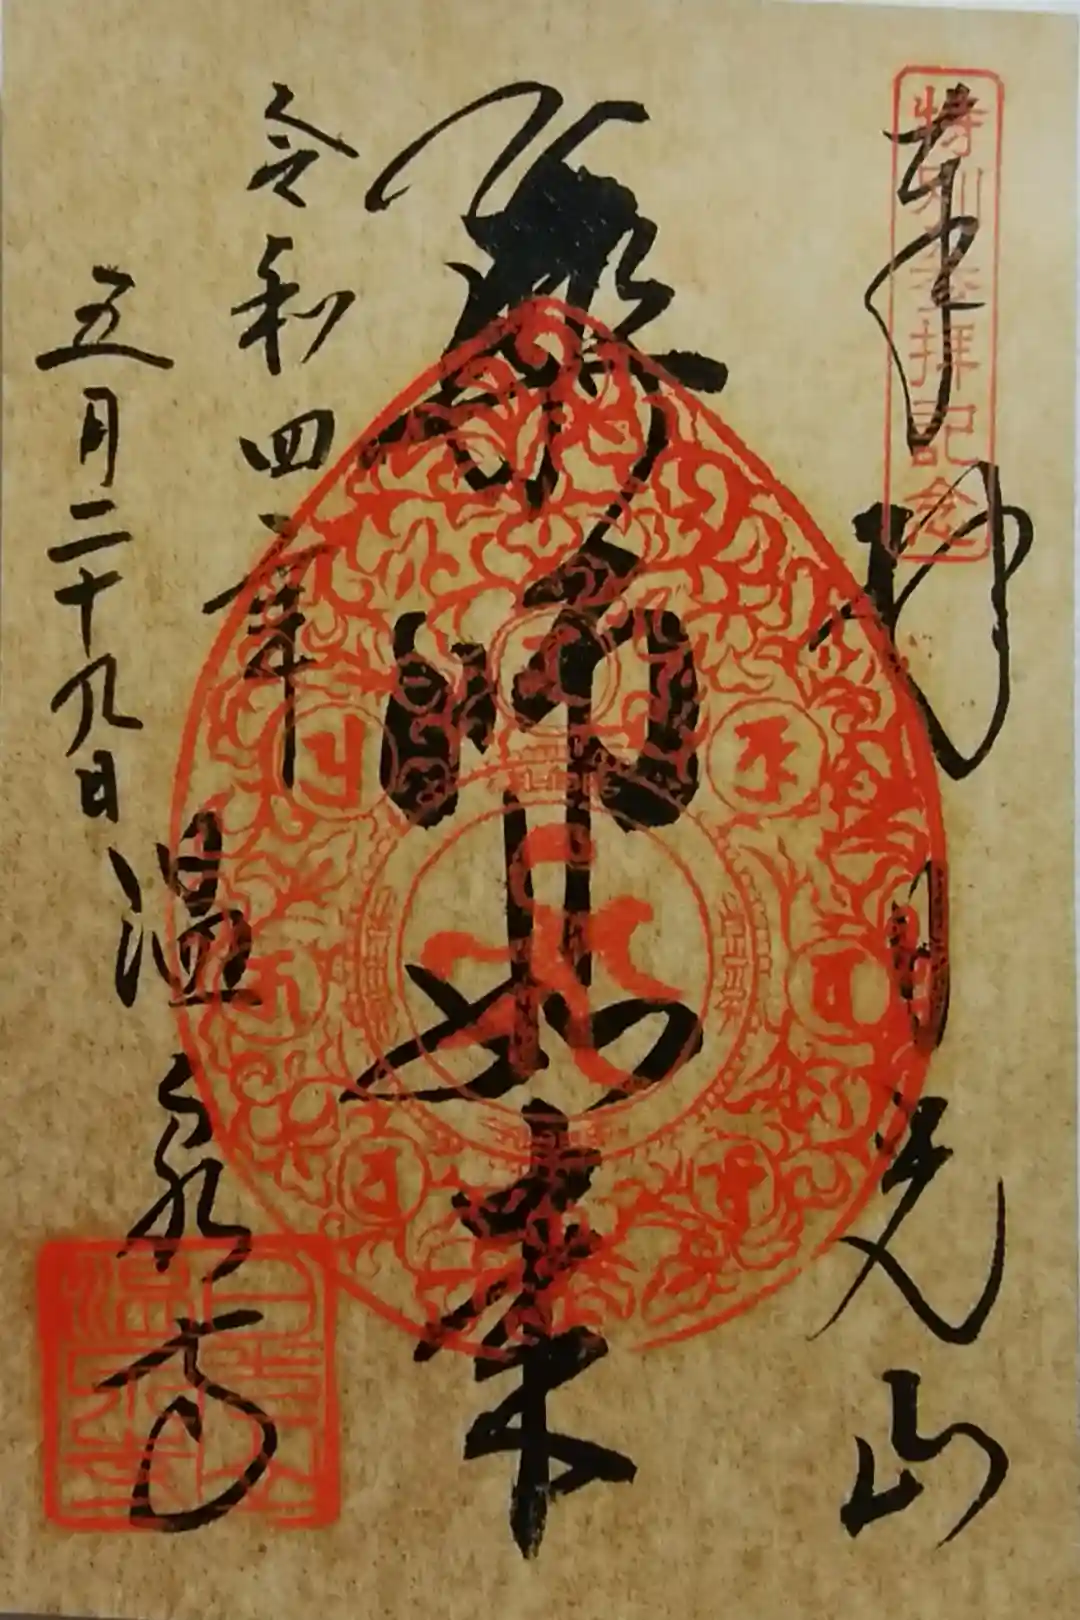 特別参拝記念
奉拝
日光山
薬師如来
令和四年
五月二十九日
温泉寺
日光山
温泉寺